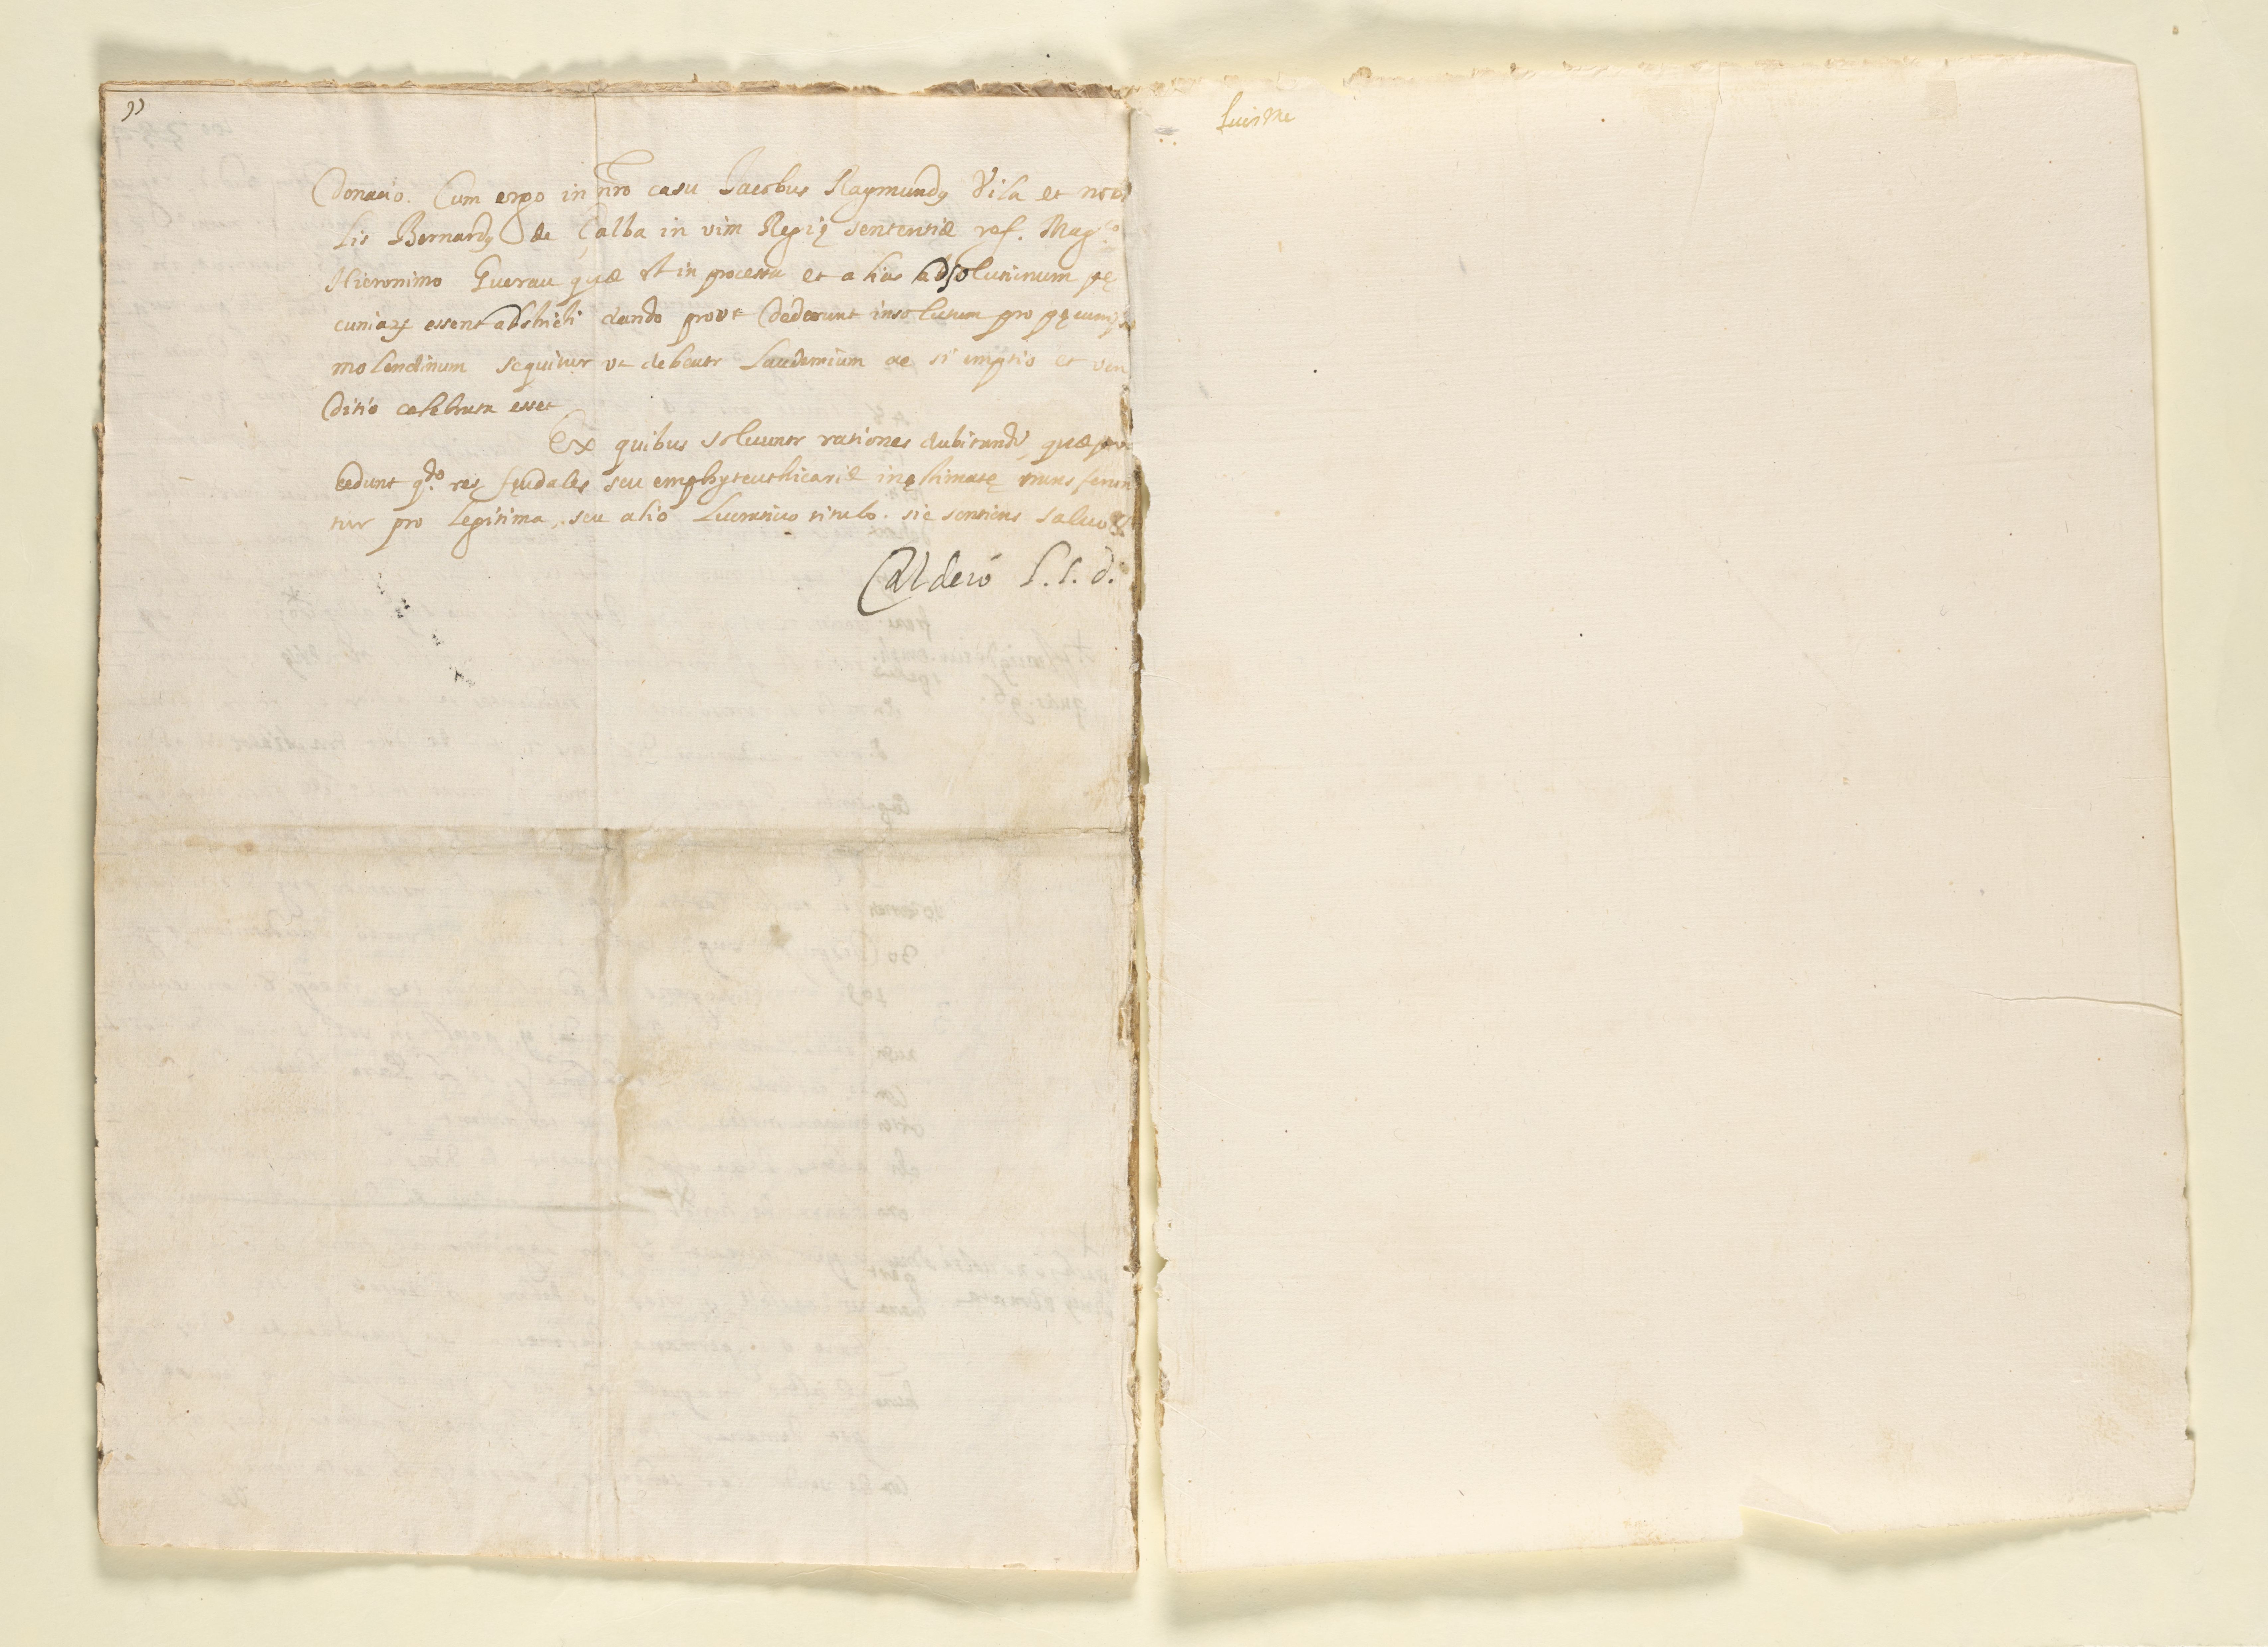 donatio. Cum ergo in nro casu Jacobus Raymundus Vila et nobi
lis Bernardus de Calba in vim Regię sententiæ ref. Mag.co
Hieronimo Guerau quæ est in processu et alias ad solutionum pę
cuniarum essent adstricti dando prout dederunt insolutum pro pęcunijs
molendinum sequitur ut debeatr Laudemium ac si emptio et ven
ditio celebrata esset
Ex quibus solvuntr rationes dubitandi, quæ pro
cedunt qdo res feudales seu emphyteuthicariæ inęstimatę transferun
tur pro legitima, seu alio Lucrativo titulo. sic sentiens salvo &
Calderó